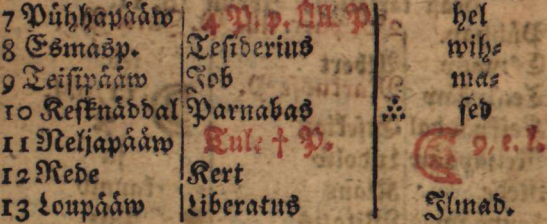 7 Pühhapääw 4 P. p. Ül. P. hel
8 Esmasp. Tesiderius wih⸗
9 Teisipääw Job ma⸗
10 Kesknäddal Parnabas sed
11 Neljapääw Tule † P. 9. e. l.
12 Rede Kert
13 Loupääw Liberatus Ilmad.